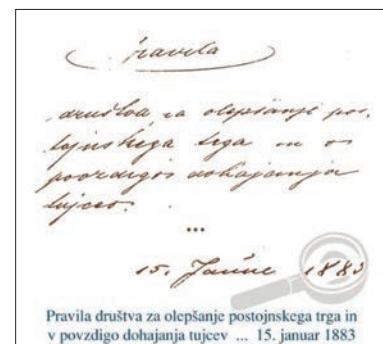 Pravila
društva za olepšanje pos-
tojnskega trga in v
povzdigo dohajanja
tujcev.
...
15. Januar 1883
Pravila društva za olepšanje postojnskega trga in
v povzdigo dohajanja tujcev ... 15. januar 1883